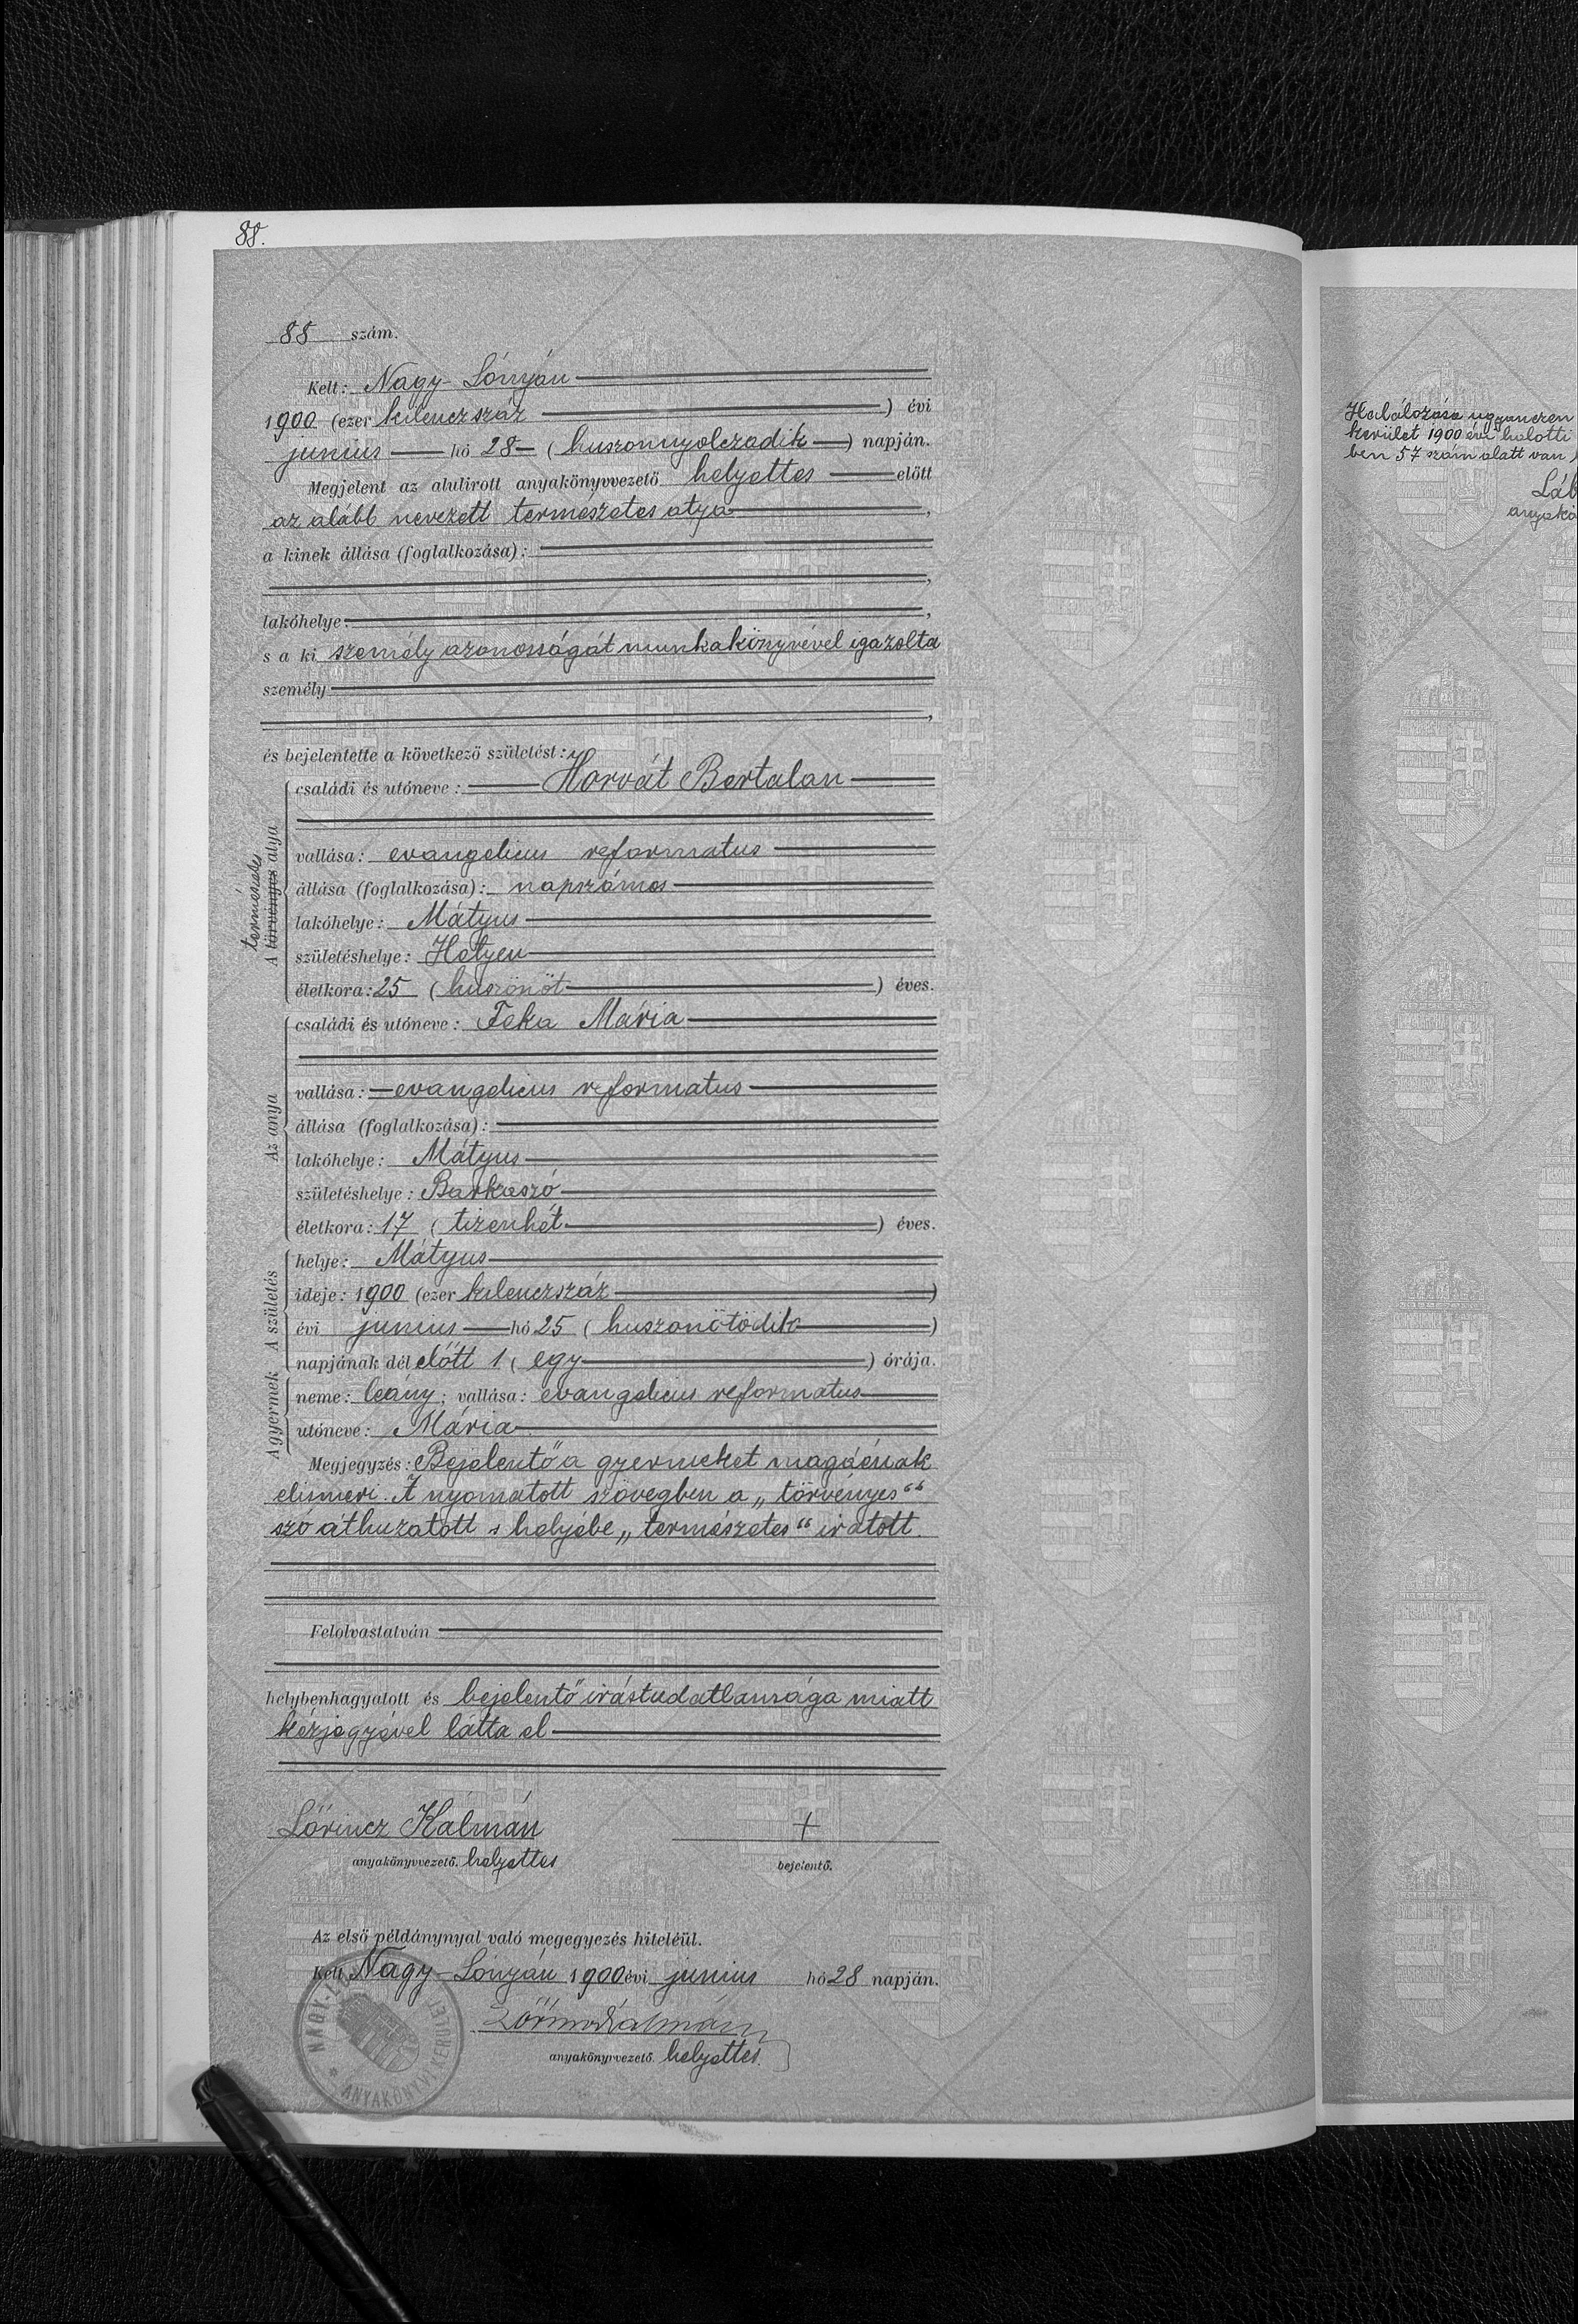 88.
88 szám.
Kelt: Nagy-Lónyán
1900 (ezer kilenczszáz) évi
junius hó 28 (huszonnyolczadik) napján.
Megjelent az alulirott anyakönyvvezető helyettes előtt
az alább nevezett természetes atya,
a kinek állása (foglalkozása):
,
lakóhelye:,
s a ki személy azonosságát munkakönyvével igazolta
személy
,
és bejelentette a következő születést:
A törvényes atya
természetes
családi és utóneve: Horvát Bertalan
vallása: evangelicus reformatus
állása (foglalkozása): napszámos
lakóhelye: Mátyus
születéshelye: Hetyen
életkora: 25 (huszönöt) éves.
Az anya
családi és utóneve: Feka Mária
vallása: evangelicus reformatus
állása (foglalkozása):
lakóhelye: Mátyus
születéshelye: Barkaszó
életkora: 17 (tizenhét) éves.
A születés
helye: Mátyus
ideje: 1900 (ezer kilenczszáz)
évi junius hó 25 (huszonötödik)
napjának dél előtt 1 (egy) órája.
A gyermek
neme: leány; vallása: evangelicus reformatus
utóneve: Mária
Megjegyzés: Bejelentő a gyermeket magáénak
elismeri. A nyomatott szövegben a „törvényes“
szó áthuzatott s helyébe „természetes“ iratott.
Felolvastatván
helybenhagyatott és bejelentő irástudatlansága miatt
kézjegyével látta el
Lőrincz Kálmán +
anyakönyvvezető. helyettes bejelentő.
Az első példánynyal való megegyezés hiteléül.
Kelt Nagy-Lónyán 1900 évi junius hó 28 napján.
Lőrincz Kálmán
anyakönyvvezető. helyettes.
NAGY-L KERÜLET * ANYAKÖNYVI
Halálozása ugyanezen
kerület 1900 évi halotti
ben 57 szám alatt van
Láb
anyakö